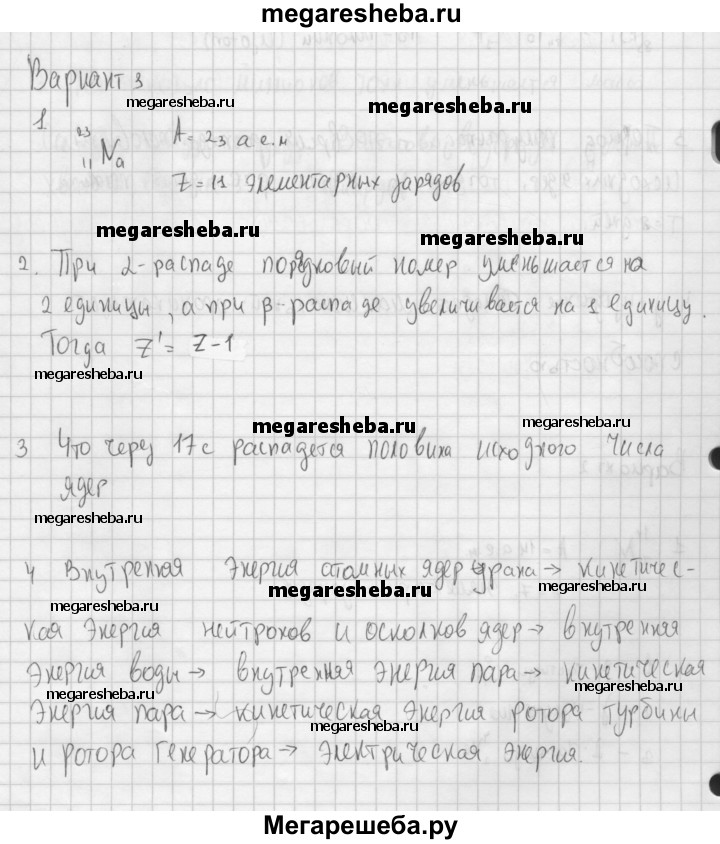 megaresheba.ru
Вариант 3
megaresheba.ru
megaresheba.ru
1 23 11 Na A = 23 а.е.м
Z = 11 элементарных зарядов
megaresheba.ru
megaresheba.ru
2. При α-распаде порядковый номер уменьшается на
2 единицы, а при β-распаде увеличивается на 1 единицу.
Тогда Z' = Z-1
megaresheba.ru
megaresheba.ru
megaresheba.ru
3 Что через 17 с распадется половина исходного числа
ядер
megaresheba.ru
4 Внутренняя энергия атомных ядер урана → кинетичес-
megaresheba.ru
megaresheba.ru
megaresheba.ru
кая энергия нейтронов и осколков ядер → внутренняя
энергия воды → внутренняя энергия пара → кинетическая
megaresheba.ru
megaresheba.ru
энергия пара → кинетическая энергия ротора турбины
megaresheba.ru
и ротора генератора → электрическая энергия.
Мегарешеба.ру